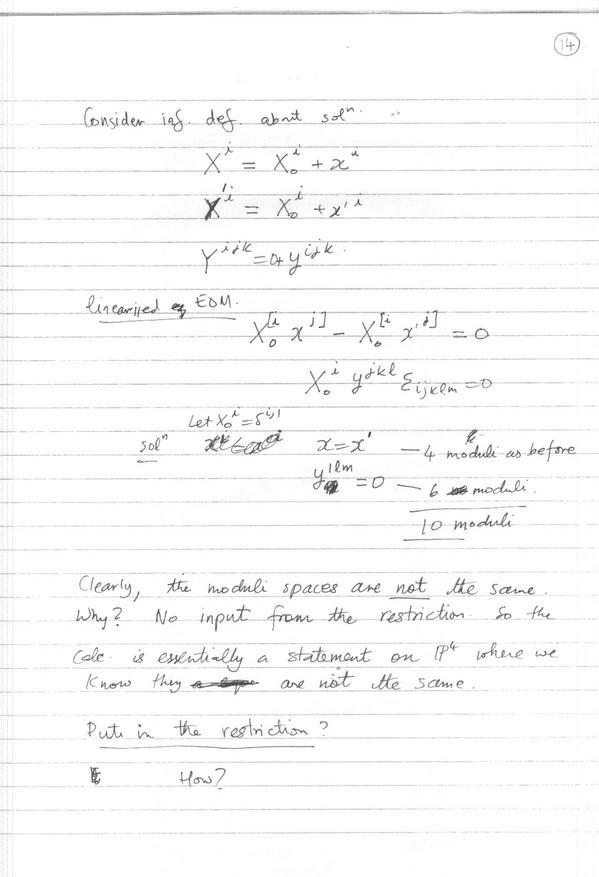 14
Consider inf. def. about solⁿ. ..
Xⁱ = X₀ⁱ + xⁱ
X'ⁱ = X₀ⁱ + x'ⁱ
Yⁱʲᵏ = 0 + yⁱʲᵏ.
linearised EOM.
X₀^[i x^j] − X₀^[i x'^j] = 0
X₀ⁱ y^{jkl} ε_{ijklm} = 0
Let X₀ⁱ = δ^{i,1}
solⁿ x = x' — 4 moduli as before
y^{1lm} = 0 — 6 moduli.
10 moduli
Clearly, the moduli spaces are not the same.
Why? No input from the restriction. So the
calc. is essentially a statement on ℙ⁴ where we
know they are not the same.
Put in the restriction?
How?